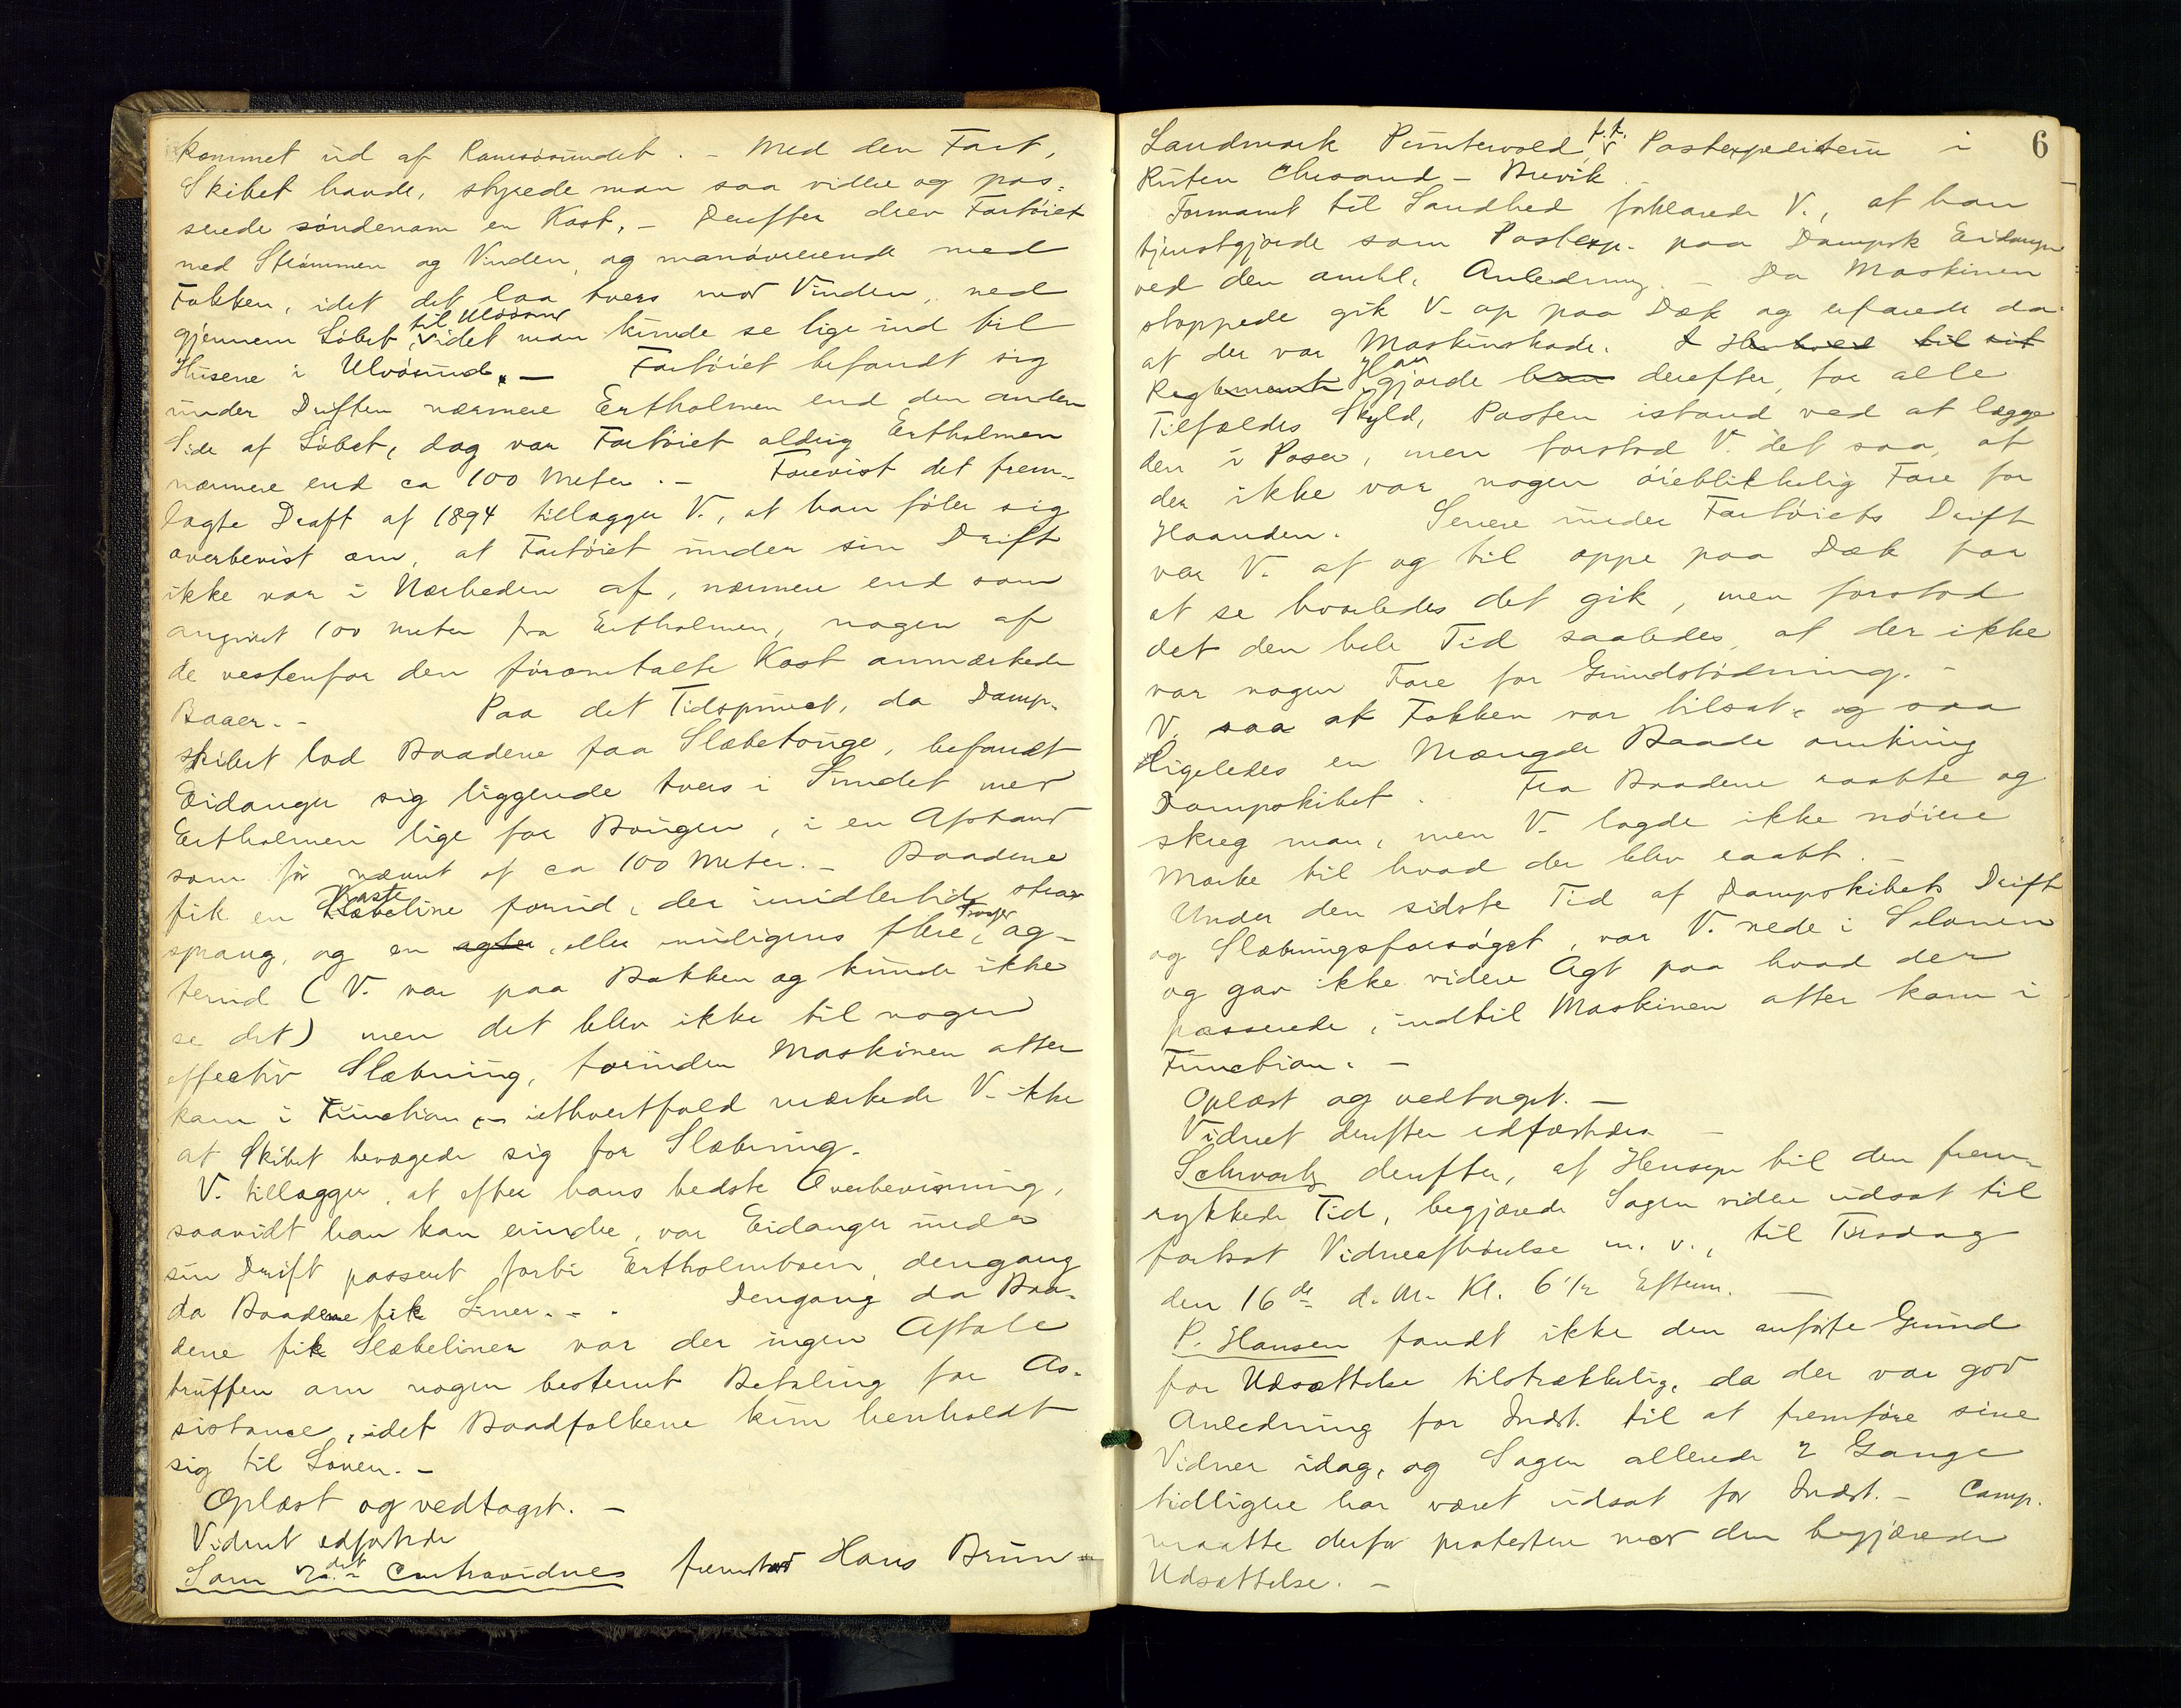 kommet ud af Ramsösundet. - Med den Fart,
Skibet havde, styrede man saa videre og pas-
serede söndenom en Kost. - Derefter drev Fartöiet
med Strömmen og Vinden, og manövrerende med
Fokken, idet det laa tvers mod Vinden, ned
gjennem Löbet til Ulösund, idet man kunde se lige ind til
Husene i Ulvösund. - Fartöiet befandt sig
under Driften nærmere Ertholmen end den anden
Side af Löbet, dog var Fartöiet aldrig Ertholmen
nærmere end ca 100 Meter. - Forevist det frem-
lagte Draft af 1894 tillægger V., at han föler sig
overbevist om, at Fartöiet under sin Drift
ikke var i Nærheden af, nærmere end som
angivet 100 meter fra Ertholmen, nogen af
de vestenfor den föromtalte Kost anmærkede
Baaer. - Paa det Tidspunct, da Damp-
skibet lod Baadene faa Slæbetouge, befandt
Eidanger sig liggende tvers i Sundet med
Ertholmen lige for Bougen, i en Afstand
som för nævnt af ca 100 Meter. - Baadene
fik en Kasteline forud, der imidlertid strax
sprang, og en agter, eller muligens flere, Trosser ag-
terud (V. var paa Bakken og kunde ikke
se det) men det blev ikke til nogen
effectiv Slæbning, forinden Maskinen atter
kom i Function, - iethvertfald mærkede V. ikke
at Skibet bevægede sig for Slæbning.
V. tillægger, at efter hans bedste Overbevisning,
saavidt han kan erindre, var Eidanger under
sin Drift passert forbi Ertholmboen, dengang
da Baadene fik Liner. - . Dengang da Baa-
dene fik Slæbeliner var der ingen Aftale
truffen om nogen bestemt Betaling for As-
sistance, idet Baadfolkene kun henholdt
sig til Loven. -
Oplæst og vedtaget. -
Vidnet edfæstede
Som 2det Contravidne fremstod Hans Brun-
6
Landmark Punterwold, f.t. Postexpeditem i
Ruten Chrsand - Brevik
Formanet til Sandhed forklarede V., at han
tjenstgjorde som Postexp. paa Dampsk Eidanger
ved den omhl. Anledning. - Da Maskinen
stoppede gik V. op paa Dæk og erfarede da
at der var Maskinskade. I Henhold til sit
Reglement Han gjorde han derefter, for alle
Tilfældes Skyld, Posten istand ved at lægge
den i Poser, men forstod V. det saa, at
der ikke var nogen öieblikkelig Fare for
Haanden. Senere under Fartöiets Drift
var V. af og til oppe paa Dæk for
at se hvorledes det gik, men forstod
det den hele Tid saaledes, at der ikke
var nogen Fare for Grundstödning. -
V. saa at Fokken var tilsat, og saa
Ligeledes en Mængde Baade omkring
Dampskibet. Fra Baadene raabte og
skreg man, men V. lagde ikke nöiere
Mærke til hvad der blev raabt. -
Under den sidste Tid af Dampskibets Drift
og Slæbningsforsöget, var V. nede i Salonen
og gav ikke videre Agt paa hvad der
passerede, indtil Maskinen atter kom i
Function. -
Oplæst og vedtaget. -
Vidnet derefter edfæstedes -
Schwartz derefter, af Hensyn til den frem-
rykkede Tid, begjærede Sagen videre udsat til
fortsat Vidneafhörelse m. v., til Tirsdag
den 16de d. M. Kl. 6 1/2 Efterm. -
P. Hansen fandt ikke den anförte Grund
for Udsættelse tilstrækkelig, da der var god
Anledning for Indst. til at fremföre sine
Vidner idag, og Sagen allerede 2 Gange
tidligere har været udsat for Indst. - Comp.
maatte derfor protestere mod den begjærede
Udsættelse. -